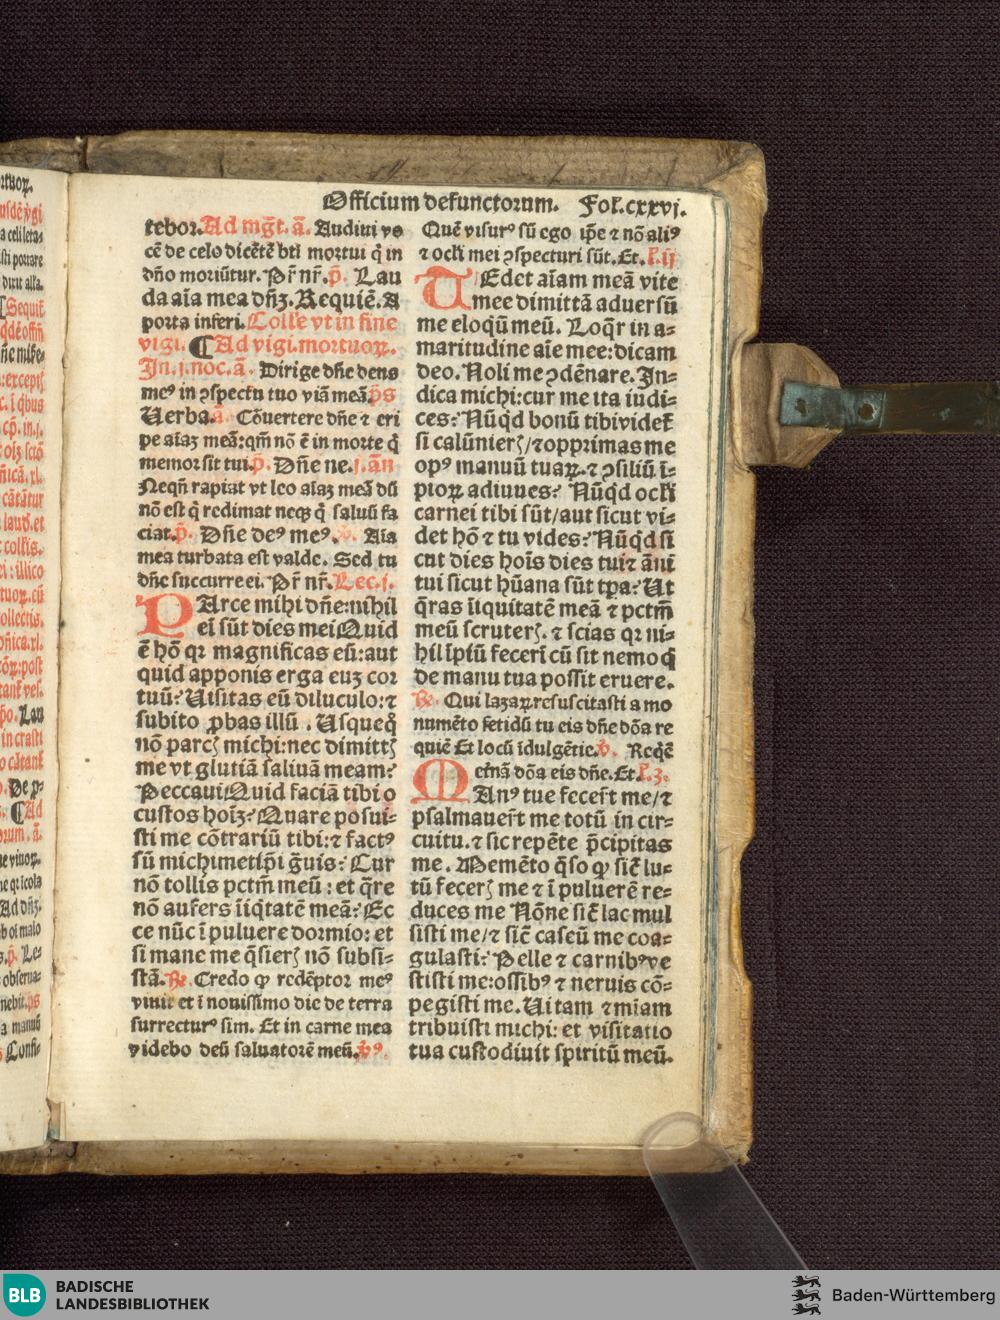 Officium defunctorum. Fol.cxxvj.
tebor. Ad mg̃t. ã. Audiui vo
cẽ de celo dicẽtẽ bti mortui q̇ in
dño moriũtur. Pr̃ nr̃. p̃. Lau
da aĩa mea dñʒ. Requiẽ. A
porta inferi. Collẽ vt in fine
vigi. ¶ Ad vigi. mortuoꝝ.
In .j. noc. ã. Dirige dñe deus
meꝰ in ↄspectu tuo viã meã. p̃s
Uerba. ã. Cõuertere dñe ⁊ eri
pe aĩaʒ meã: qm̃ nõ ẽ in morte q̇
memor sit tui. p̃. Dñe ne. j. ãn
Neqñ rapiat vt leo aĩaʒ meã dũ
nõ est q̇ redimat neqʒ q̇ saluũ fa
ciat. p̃. Dñe deꝰ meꝰ. ℣. Aĩa
mea turbata est valde. Sed tu
dñe succurre ei. Pr̃ nr̃. Lec. j.
PArce mihi dñe: nihil
ei sũt dies mei Quid
ẽ hõ qꝛ magnificas eũ: aut
quid apponis erga euʒ cor
tuũ? Uisitas eũ diluculo: ⁊
subito ꝓbas illũ. Usqueq̃
nõ parcʒ michi: nec dimittʒ
me vt glutiã saliuã meam?
Peccaui Quid faciã tibi o
custos hoĩʒ? Quare posui⸗
sti me cõtrariũ tibi: ⁊ factꝰ
sũ michimetip̃i g̃uis? Cur
nõ tollis pctm̃ meũ: et q̃re
nõ aufers ĩiq̃tatẽ meã? Ec
ce nũc ĩ puluere dormio: et
si mane me q̃sierʒ nõ subsi⸗
stã. ℟. Credo ꝙ redẽptor meꝰ
viuit et ĩ nouissimo die de terra
surrecturꝰ sim. Et in carne mea
videbo deũ saluatorẽ meũ. ℣ꝰ.
Quẽ visurꝰ sũ ego ip̃e ⁊ nõ aliꝰ
⁊ ocli mei ↄspecturi sũt. Et. l. ij
TEdet aĩam meã vite
mee dimittã aduersũ
me eloqũ meũ. Loqr̃ in a⸗
maritudine aĩe mee: dicam
deo. Noli me ↄdẽnare. In⸗
dica michi: cur me ita iudi⸗
ces? Nũqd bonũ tibi videt̃
si calũnierʒ/ ⁊ opprimas me
opꝰ manuũ tuaꝝ. ⁊ ↄsiliũ ĩ⸗
pioꝝ adiuues? Nũqd ocli
carnei tibi sũt/ aut sicut vi⸗
det hõ ⁊ tu vides? Nũqd si
cut dies hoĩs dies tui ⁊ ãni
tui sicut hũana sũt tp̃a? Ut
q̃ras ĩiquitatẽ meã ⁊ pctm̃
meũ scruterʒ. ⁊ scias qꝛ ni⸗
hil ĩpiũ fecerĩ cũ sit nemo q̇
de manu tua possit eruere.
℟. Qui lazaꝝ resuscitasti a mo
numẽto fetidũ tu eis dñe dõa re
quiẽ Et locũ ĩdulgẽtie. ℣. Reqẽ
etẽnã dõa eis dñe. Et. l. 3.
MAnꝰ tue fecer̃t me/ ⁊
psalmauer̃t me totũ in cir⸗
cuitu. ⁊ sic repẽte p̃cipitas
me. Memẽto q̃so ꝙ sic̃ lu⸗
tũ fecerʒ me ⁊ ĩ puluerẽ re⸗
duces me Nõne sic̃ lac mul
sisti me/ ⁊ sic̃ caseũ me coa⸗
gulasti? Pelle ⁊ carnibꝰ ve
stisti me: ossibꝰ ⁊ neruis cõ⸗
pegisti me. Uitam ⁊ m̃iam
tribuisti michi: et visitatio
tua custodiuit spiritũ meũ.
BLB BADISCHE
LANDESBIBLIOTHEK
Baden-Württemberg